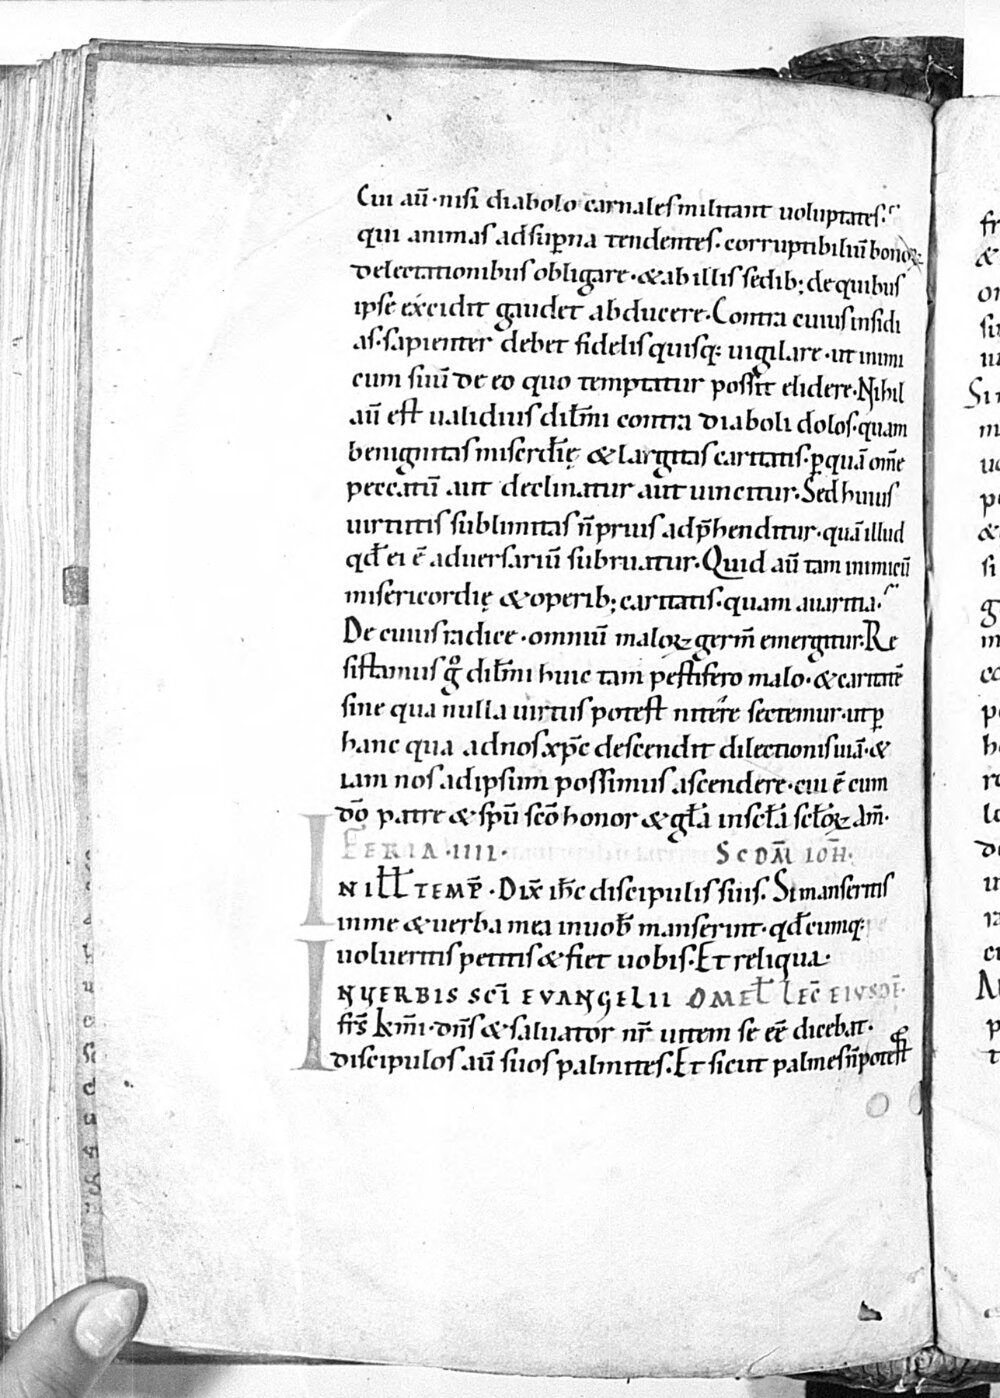 Cui aū·nisi diabolo carnales militant uoluptates.
qui animas ad sup̄na tendentes. corruptibiliū bonoꝝ
delectationibus obligare·& ab illis sedib; de quibus
ipse excidit gaudet abducere. Contra cuius insidi
as. sapienter debet fidelis quisq: uigilare·ut inimi
cum suū de eo quo temptatur possit elidere. Nihil
aū est ualidius dil̄mi contra diaboli dolos. quam
benignitas miscrdīę & largitas caritatis. ꝑ quā om̄e
peccatū aut declinatur aut uincitur. Sed huius
uirtutis sublimitas n̄ prius adp̄henditur. quā illud
qđ ei ē aduersariū subruatur. Quid aū tam inimicū
misericordię & operib; caritatis. quam auaritia.
De cuius radice·omniū maloꝝ germ̄ emergitur. Re
sistamus gͦ dil̄mi huic tam pestifero malo·& caritatē
sine qua nulla uirtus potest nitere sectemur. ut ꝑ
hanc qua ad nos xp̄c descendit dilectionis uiā·&
iam nos ad ipsum possimus ascendere·cui ē cum
dō patre & sp̄u scō honor & gl̄a in scl̄a scl̄oꝝ am̄·
FERIA·IIII· SCDM̄ IOH̄·
IN ILL̄ TEMP̄·Dix̄ ih̄c discipulis suis. Si manseritis
in me & uerba mea in uob̄ manserint·qđcumq:
uolueritis petitis & fiet uobis. Et reliqua·
IN UERBIS SCĪ EVANGELII OMEL̄ LEC̄ EIUSDĒ·
frs̄ k̄mi·dn̄s & saluator nr̄ uitem se eē dicebat·
discipulos aū suos palmites. Et sicut palmes n̄ potest